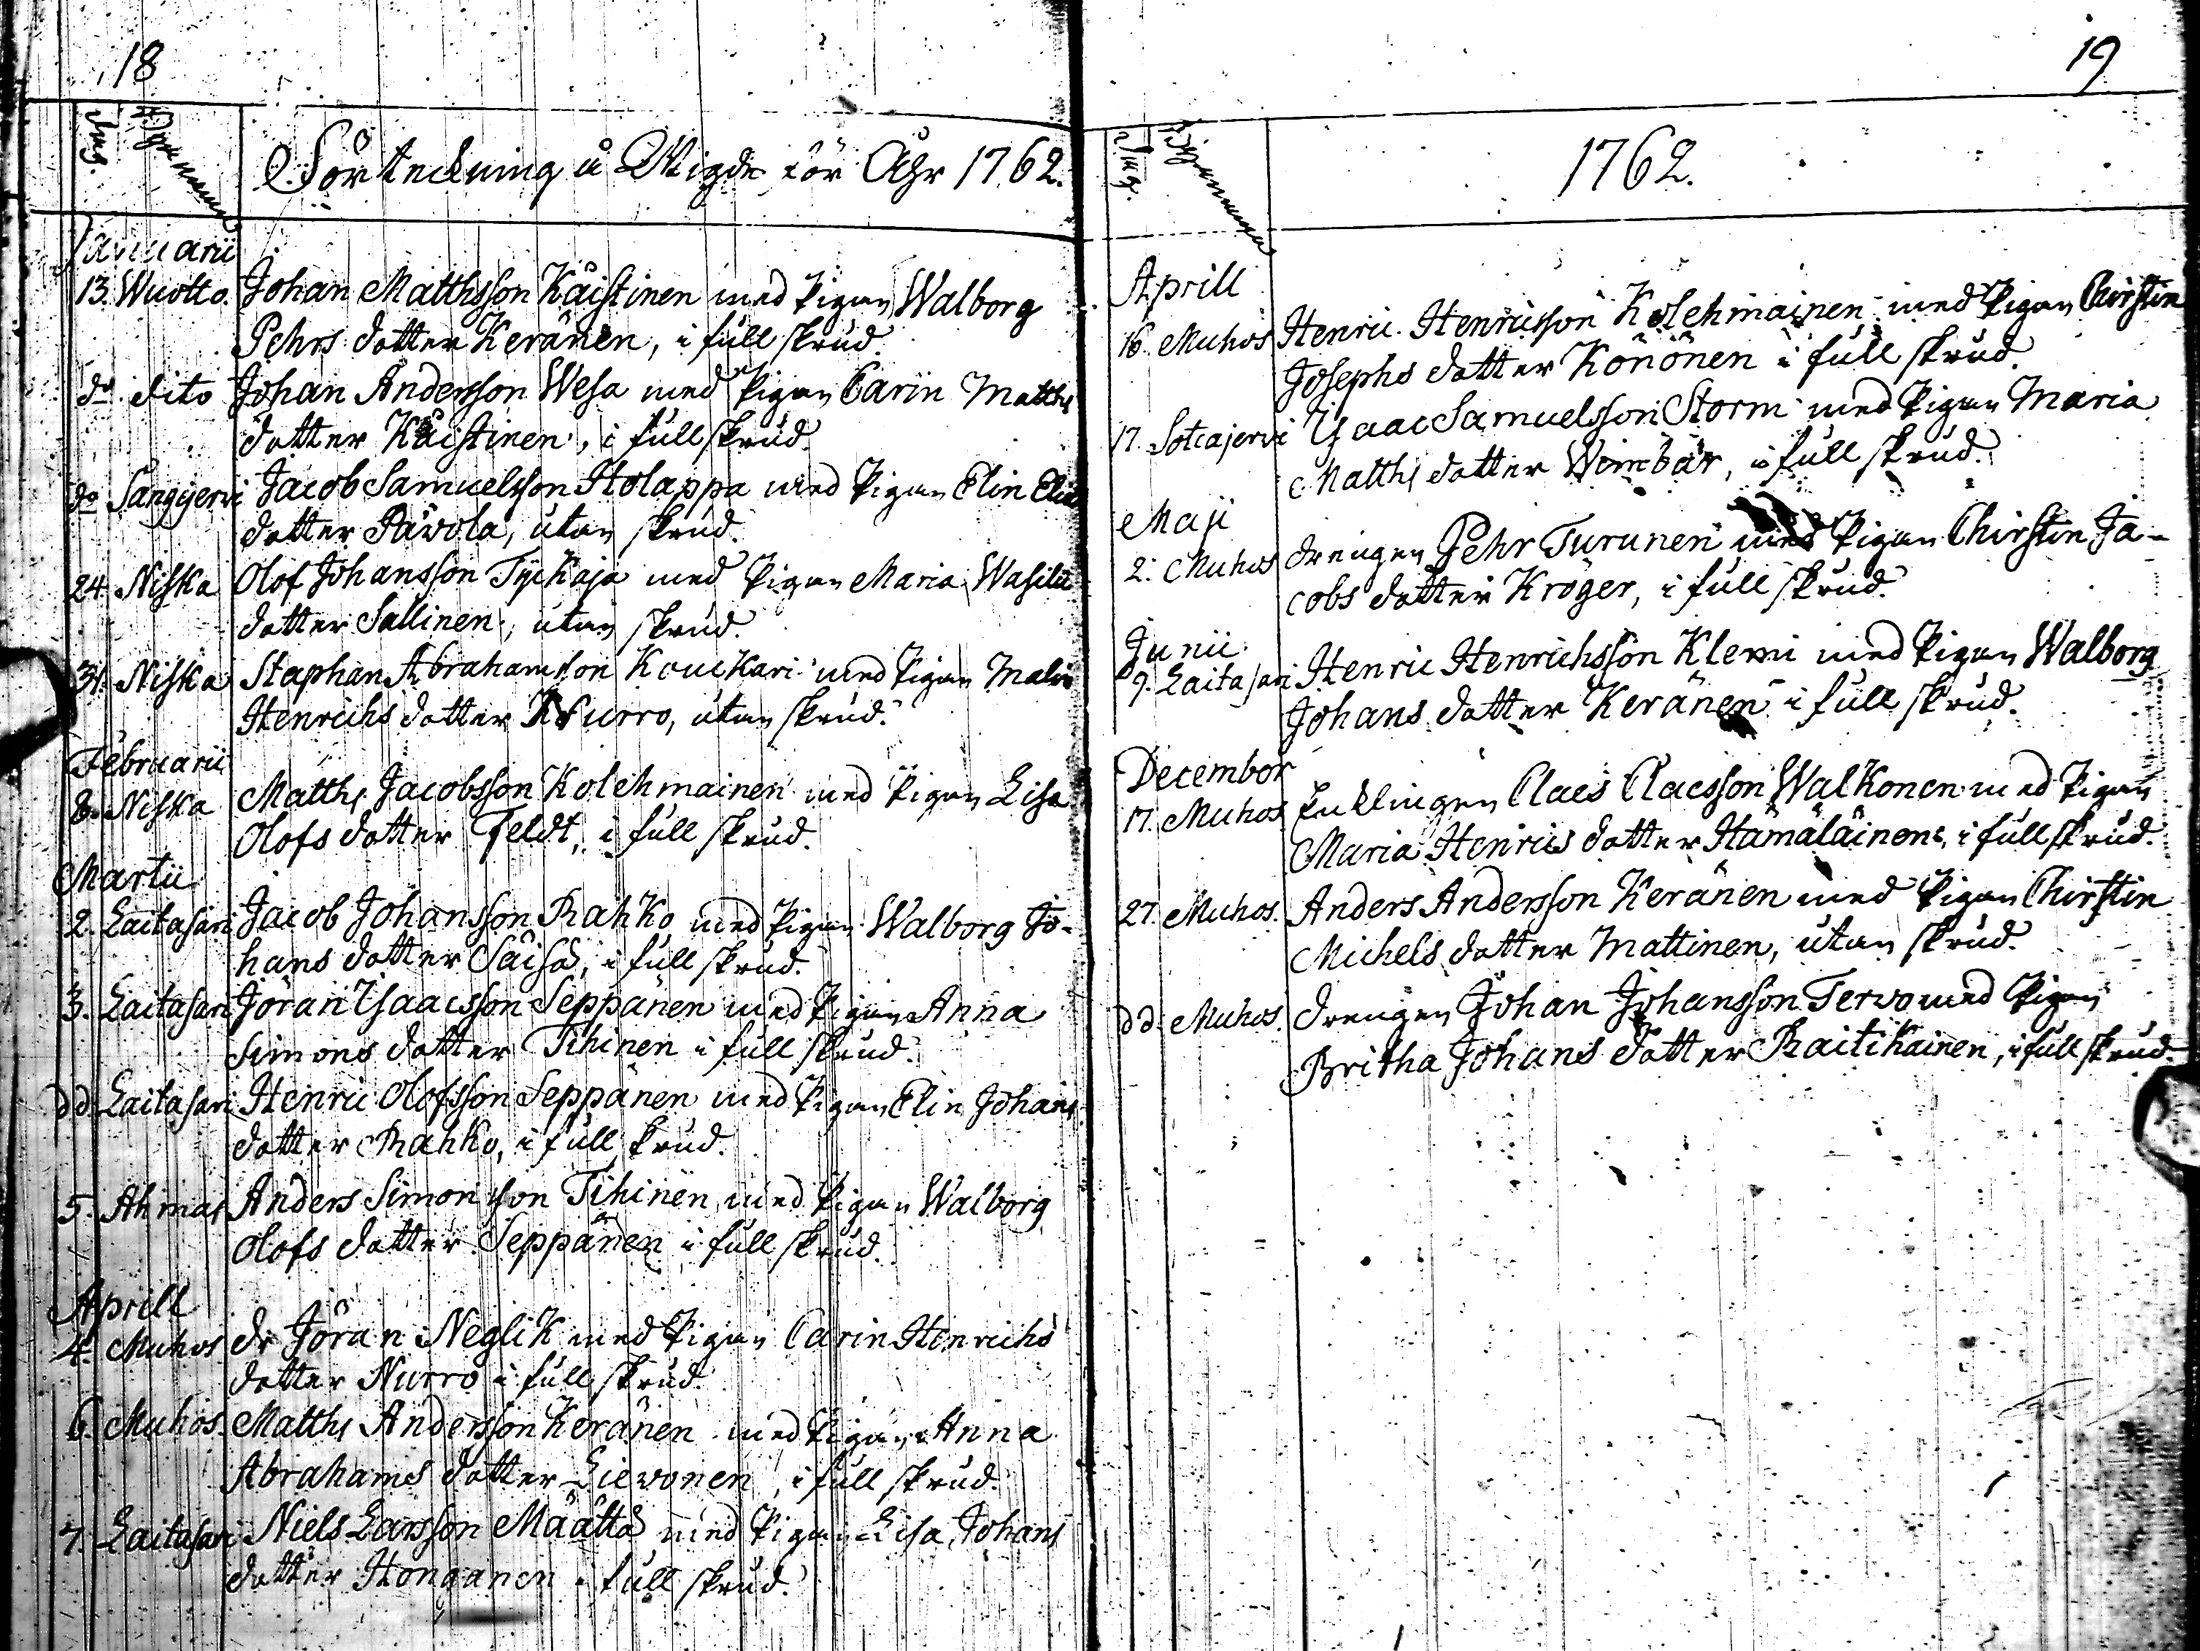 18
Dag.
Byanamn
Förteckning å Wigde för Åhr 1762.
Januarii
13. Wuotto. Johan Matthsson Käistinen med Pigan Walborg
Pehrs dotter Keränen, i full skrud.
do dito Johan Andersson Wesa med Pigan Carin Matths
dotter Käistinen, i full skrud.
do Sangijervi Jacob Samuelsson Holappa med Pigan Elin
dotter Päwola, utan skrud.
24. Niska Olof Johansson Tyckäjä med Pigan Maria Wasilii
dotter Sallinen, utan skrud.
31. Niska Staphan Abrahamsson Kouckari med Pigan Malin
Henrichs dotter Nurro, utan skrud.
Februarii
8. Niska Matths Jacobsson Kolehmainen med Pigan Lisa
Olofs dotter Feldt, i full skrud.
Martii
2. Laitasari Jacob Johansson Rahko med Pigan Walborg Jo-
hans dotter Säisä, i full skrud.
3. Laitasari Jöran Isaacsson Seppänen med Pigan Anna
Simons dotter Tihinen i full skrud.
dd Laitasari Henric Olofsson Seppänen med Pigan Elin Johans
dotter Rahko, i full skrud.
5. Ahmas Anders Simonsson Tihinen med Pigan Walborg
Olofs dotter Seppänen i full skrud.
Aprill
4. Muhos dr Jöran Neglik med Pigan Carin Henrichs
dotter Nurro i full skrud.
6. Muhos. Matths Andersson Keränen med Pigan Anna
Abrahams dotter Lievonen, i full skrud.
7. Laitasari Niels Larsson Määttä med Pigan Lisa Johans
dotter Honganen i full skrud.
19
Dag.
Byanamn
1762.
Aprill
16. Muhos Henric Henricsson Kolehmainen med Pigan Chirstin
Josephs dotter Könönen i full skrud.
17. Sotcajervi Isaac Samuelsson Storm med Pigan Maria
Matths dotter Wimbär, i full skrud.
Maji
2. Muhos Drengen Pehr Turunen med Pigan Chirstin Ja-
cobs dotter Kröger, i full skrud.
Junii
9. Laitasari Henric Henrichsson Klemi med Pigan Walborg
Johans dotter Keränen i full skrud.
December
17. Muhos Enklingen Claes Claesson Walkonen med Pigan
Maria Henrics dotter Hämäläinen, i full skrud.
27. Muhos. Anders Andersson Keränen med Pigan Chirstin
Michels dotter Mattinen, utan skrud.
dd. Muhos. Drengen Johan Johansson Tervo med Pigan
Britha Johans dotter Raitikainen, i full skrud.